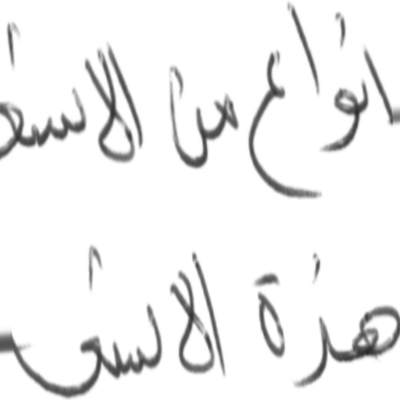 انواع من الاسئ
هذة الاسئ